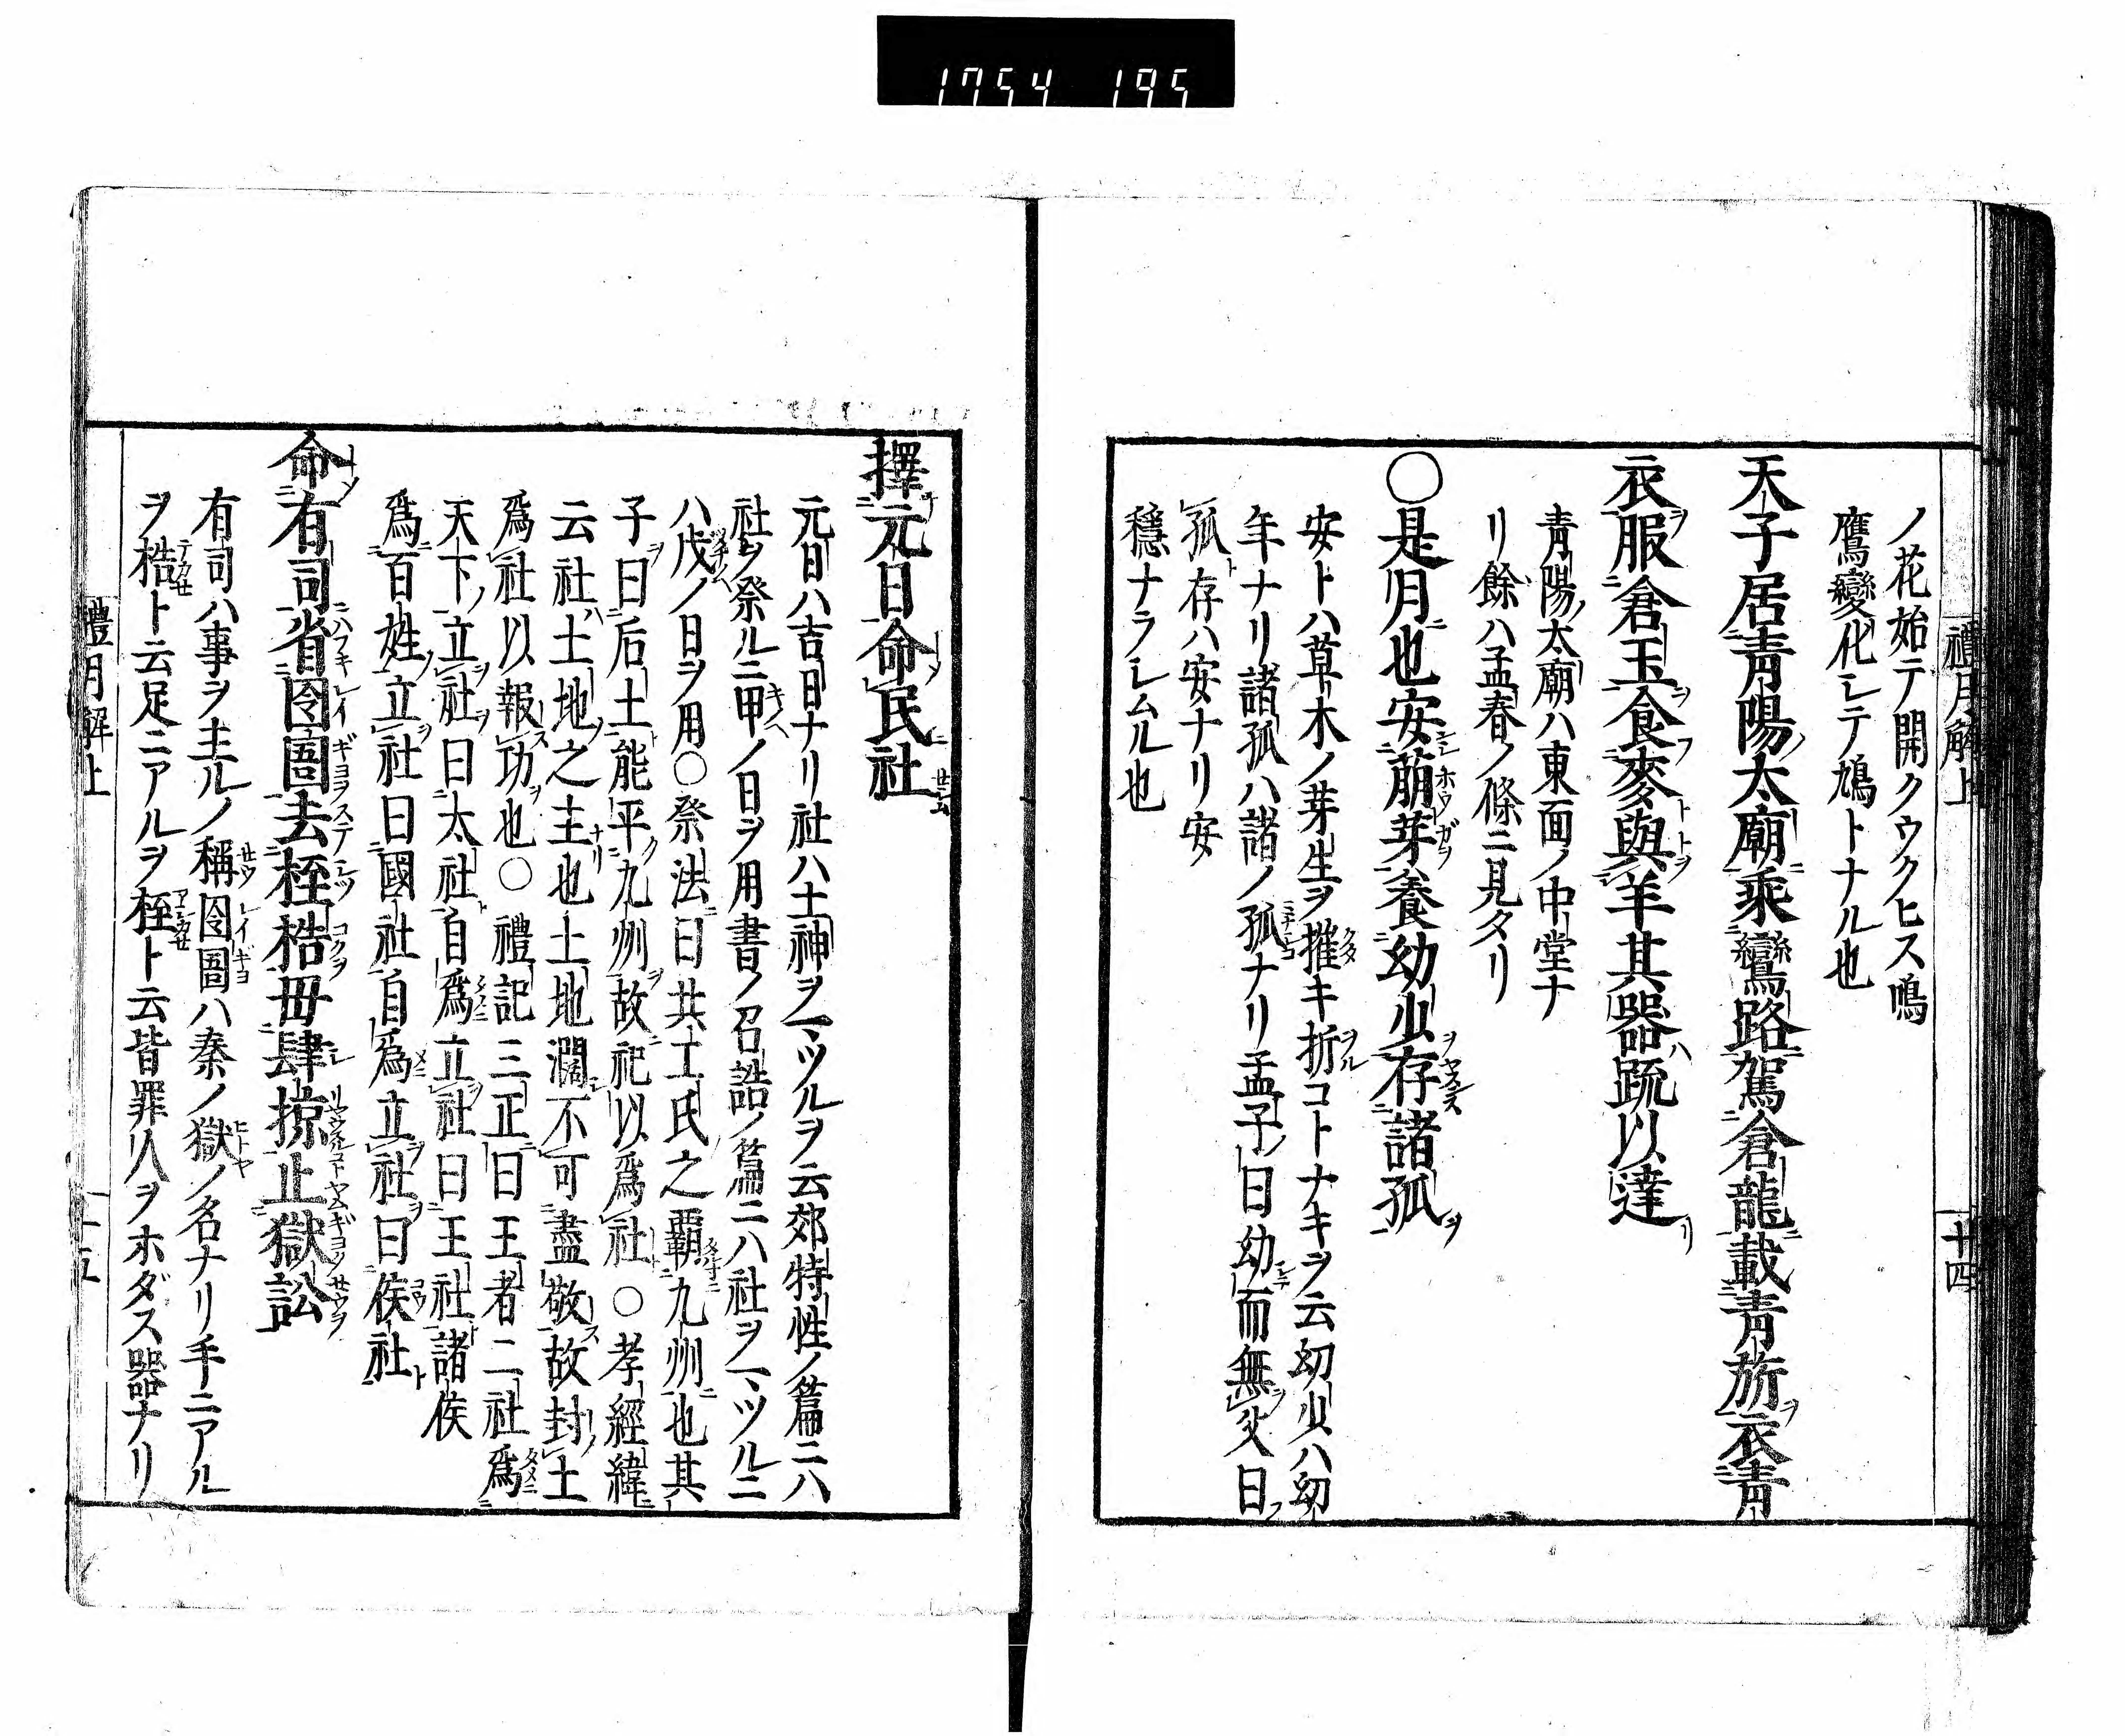 1754 195
禮月解上 十四
ノ花始テ開クウクヒス鳴
鷹變化シテ鳩トナル也
天子居青陽太廟乘鸞路駕倉龍載青旂衣青
衣服倉玉食麥與羊其器疏以達
青陽太廟ハ東面ノ中堂ナ
リ餘ハ孟春ノ條ニ見タリ
○是月也安萠芽養幼少存諸孤
安トハ草木ノ芽生ヲ摧キ折コトナキヲ云幼少ハ幼
年ナリ諸孤ハ諸ノ孤ナリ孟子曰幼而無父曰
孤存ハ安ナリ安
穩ナラシムル也
擇元日命民社
元日ハ吉日ナリ社ハ土神ヲマツルヲ云郊特性ノ篇ニハ
社ヲ祭ルニ甲ノ日ヲ用書ノ召誥ノ篇ニハ社ヲマツルニ
ハ戊ノ日ヲ用○祭法曰共工氏之覇九州也其
子曰后土能平九州故祀以爲社○孝經緯
云社土地之主也土地濶不可盡敬故封土
爲社以報功也○禮記三正曰王者二社爲
天下立社曰太社自爲立社曰王社諸侯
爲百姓立社曰國社自爲立社曰侯社
命有司省囹圄去桎梏毋肆掠止獄訟
有司ハ事ヲ主ルノ稱囹圄ハ秦ノ獄ノ名ナリ手ニアル
ヲ梏ト云足ニアルヲ桎ト云皆罪人ヲホダス器ナリ
禮月解上 十五